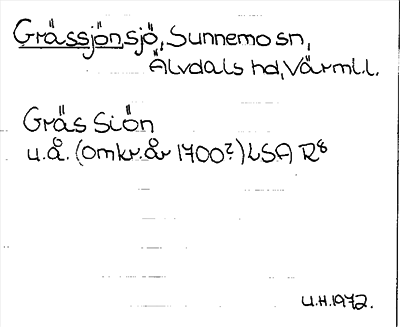 Grässjön, sjö, Sunnemo sn,
Älvdals hd, Värml.l.
Gräs Siön
u.å. (omkr. år 1700?) LSA R8
U.H. 1972.